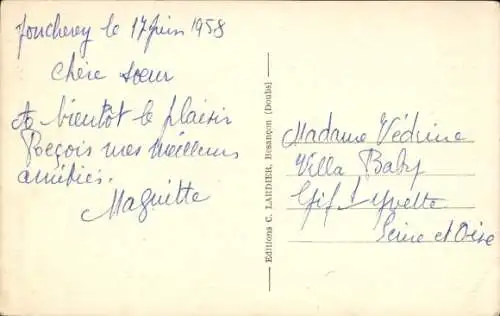 Joncherey le 17 juin 1958
Chère soeur
A bientôt le plaisir
Reçois mes meilleurs
amitiés.
Maguitte
Editions C. LARDIER, Besançon (Doubs)
Madame Védrine
Villa Baby
Gif s/Yvette
Seine et Oise